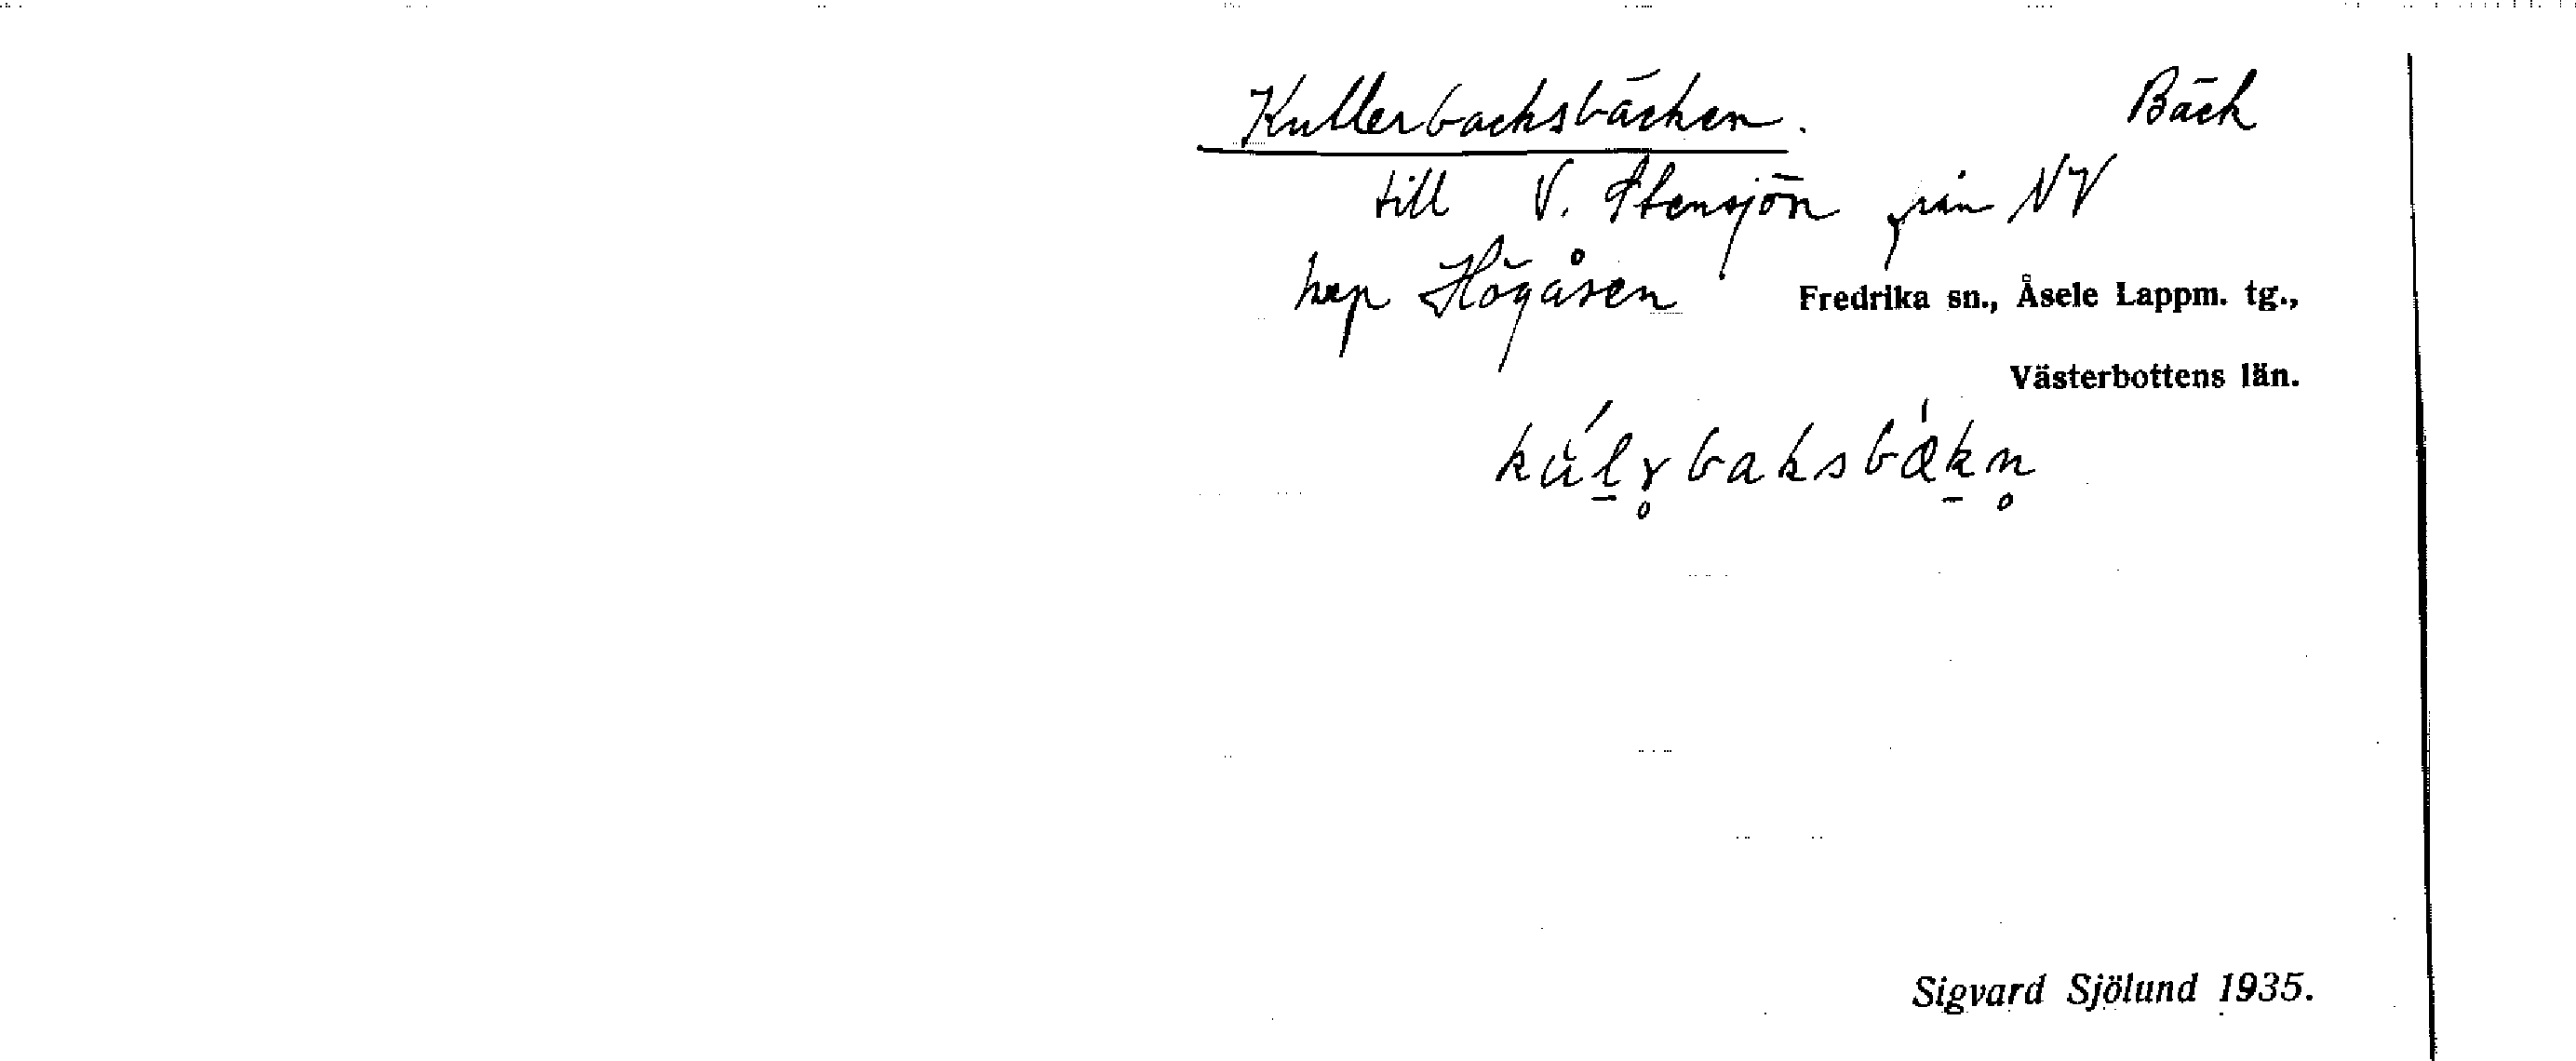 Kullerbacksbäcken. Bäck
till V. Stensjön från NV
hep Högåsen Fredrika sn., Åsele Lappm. tg.,
Västerbottens län.
kúl̠r̥baksbǽk̠n̥
Sigvard Sjölund 1935.